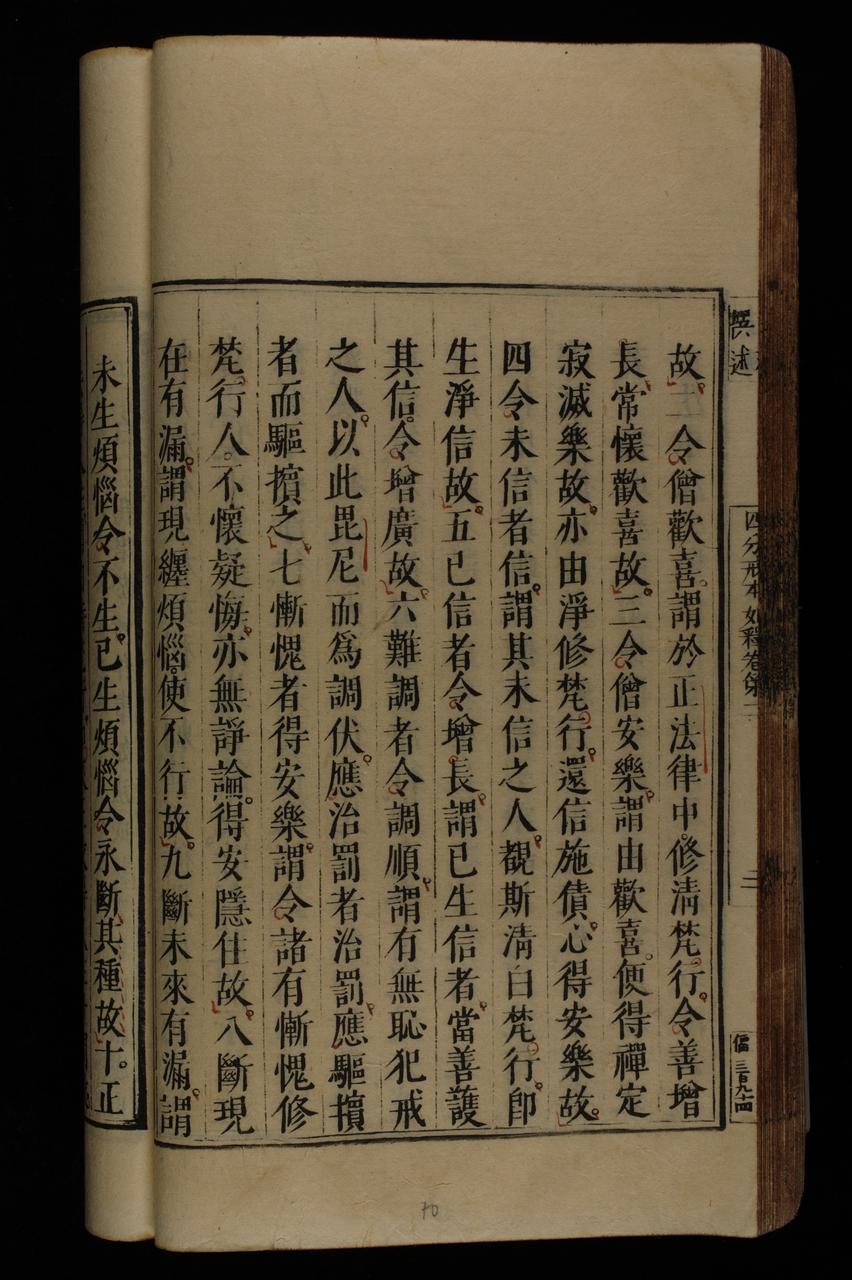 故二令僧歡喜謂於正法律中修清梵行令善增
長常懷歡喜故三令僧安樂謂由歡喜便得禪定
寂滅樂故亦由淨修梵行還信施債心得安樂故
四令未信者信謂其未信之人覩斯清白梵行即
生淨信故五已信者令增長謂已生信者當善護
其信令增廣故六難調者令調順謂有無恥犯戒
之人以此毘尼而爲調伏應治罰者治罰應驅擯
者而驅擯之七慚愧者得安樂謂令諸有慚愧修
梵行人不懷疑悔亦無諍論得安隱住故八斷現
在有漏謂現纏煩惱使不行故九斷未來有漏謂
未生煩惱令不生已生煩惱令永斷其種故十正
述
四分戒本如釋卷第二
三
三百九十四
70